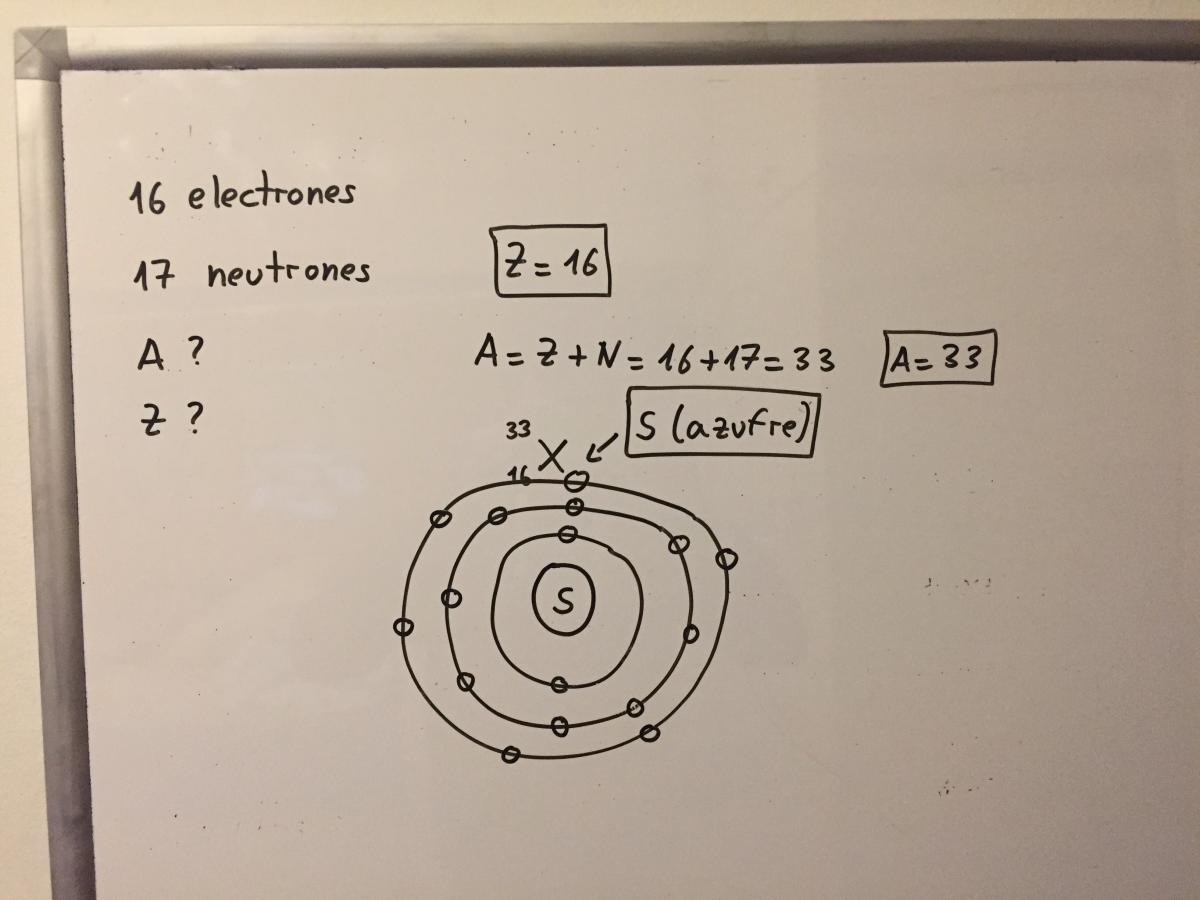 16 electrones
17 neutrones
Z = 16
A ?
A = Z + N = 16 + 17 = 33
A = 33
Z ?
S (azufre)
33
X
16
S